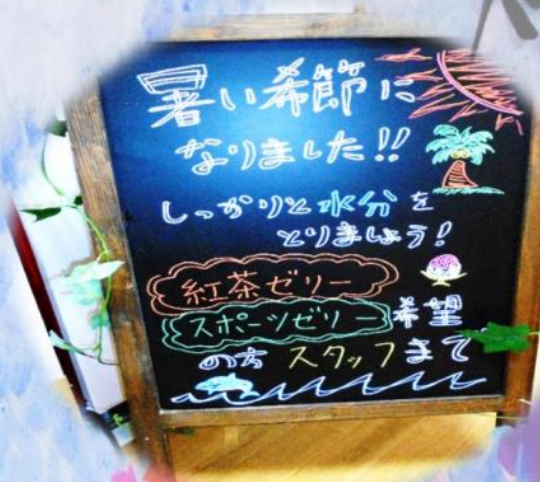 暑い希節に
なりました!!
しっかりと水分を
とりましょう!
紅茶ゼリー
スポーツゼリー希望
の方 スタッフまで